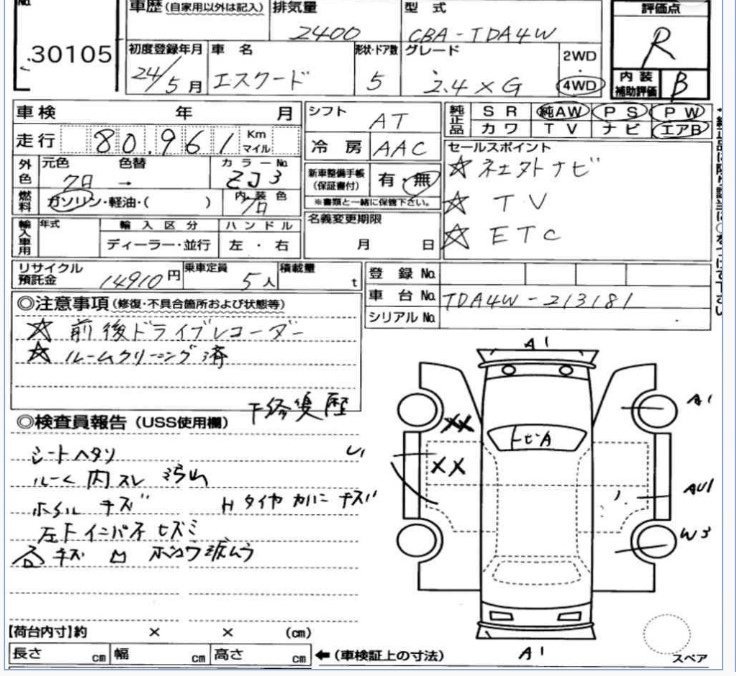 No.
30105
車歴(自家用以外は記入)
排気量
2400
型式
CBA-TDA4W
評価点
R
初度登録年月
24/5月
車名
エスクード
形状・ドア数
5
グレード
2.4 XG
2WD
4WD
内装
補助評価
B
車検 年 月
走行 80,961 Km マイル
シフト
AT
冷房 AAC
純正品
SR 純AW PS PW
カワ TV ナビ エアB
外色
元色
色替
カラーNo.
クロ → ZJ3
内装色
クロ
燃料
ガソリン・軽油・( )
新車整備手帳
(保証書付)
有・無
※書類と一緒に保管下さい。
名義変更期限
月 日
セールスポイント
☆ ネェクトナビ
☆ TV
☆ ETC
輸入車用
年式
輸入区分
ハンドル
ディーラー・並行
左・右
リサイクル
預託金
14910円
乗車定員
5人
積載量
t
登録No.
車台No. TDA4W-213181
シリアルNo.
◎注意事項(修復・不具合箇所および状態等)
☆ 前後ドライブレコーダー
☆ ルームクリーニング済
◎検査員報告(USS使用欄)
下修復歴
シートヘタリ
ルーム内スレ
ホイルキズ
H タイヤカバーキズ
左F インパネ
キズ
U1
A1
XX
XX
トビA
A1
AU1
W3
A1
【荷台内寸】約 × × (cm)
長さ cm 幅 cm 高さ cm
←(車検証上の寸法)
スペア